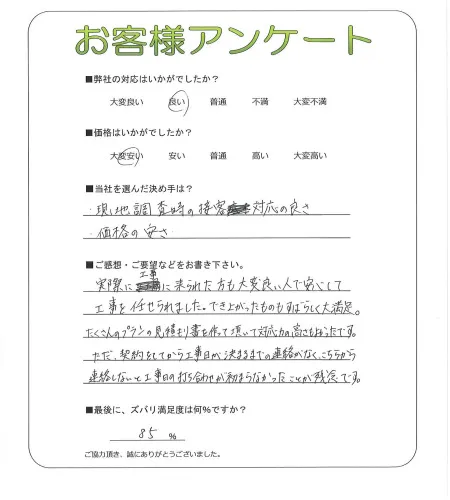 お客様アンケート
■弊社の対応はいかがでしたか？
大変良い 良い 普通 不満 大変不満
■価格はいかがでしたか？
大変安い 安い 普通 高い 大変高い
■当社を選んだ決め手は？
・現地調査時の接客対応の良さ
・価格の安さ
■ご感想・ご要望などをお書き下さい。
実際に工事に来られた方も大変良い人で安心して
工事を任せられました。でき上がったものもすばらしく大満足。
たくさんのプランの見積もり書を作って頂いて対応力の高さもよかったです。
ただ、契約をしてから工事日が決まるまでの連絡がなく、こちらから
連絡しないと工事日の打ち合わせが始まらなかったことが残念です。
■最後に、ズバリ満足度は何％ですか？
85 ％
ご協力頂き、誠にありがとうございました。